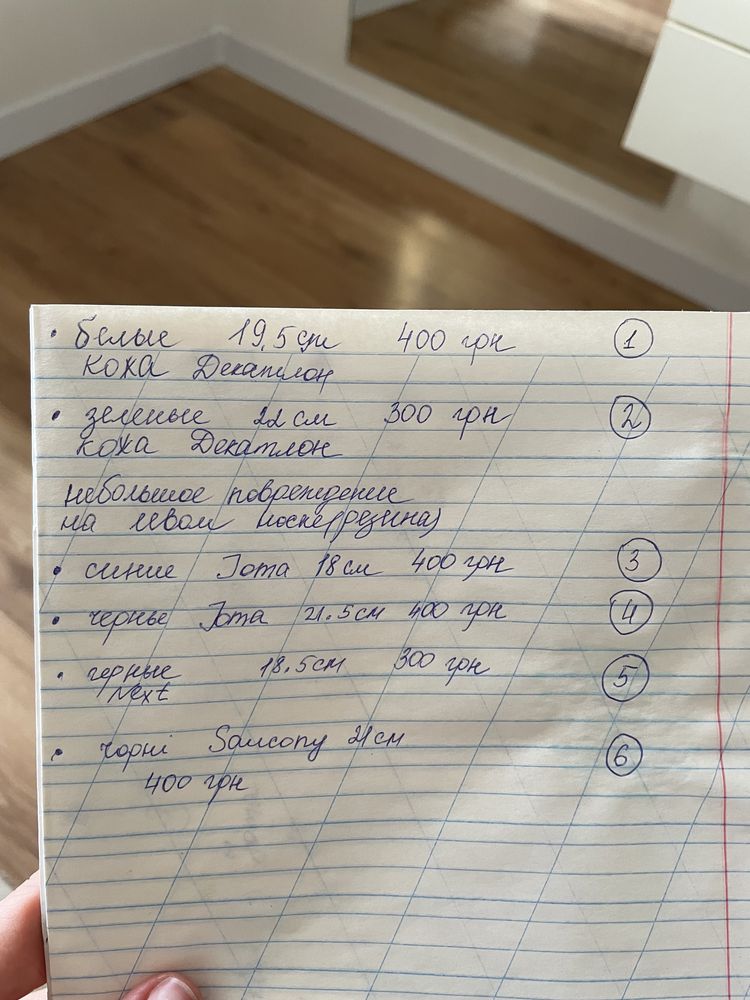 • белые 19,5 см 400 грн 1
коха Декатлон
• зеленые 22 см 300 грн 2
коха Декатлон
небольшое повреждение
на левом носке (резина)
• синие Joma 18 см 400 грн 3
• черные Joma 21.5 см 400 грн 4
• черные 18.5 см 300 грн 5
Next
• чорні Saucony 21 см 6
400 грн